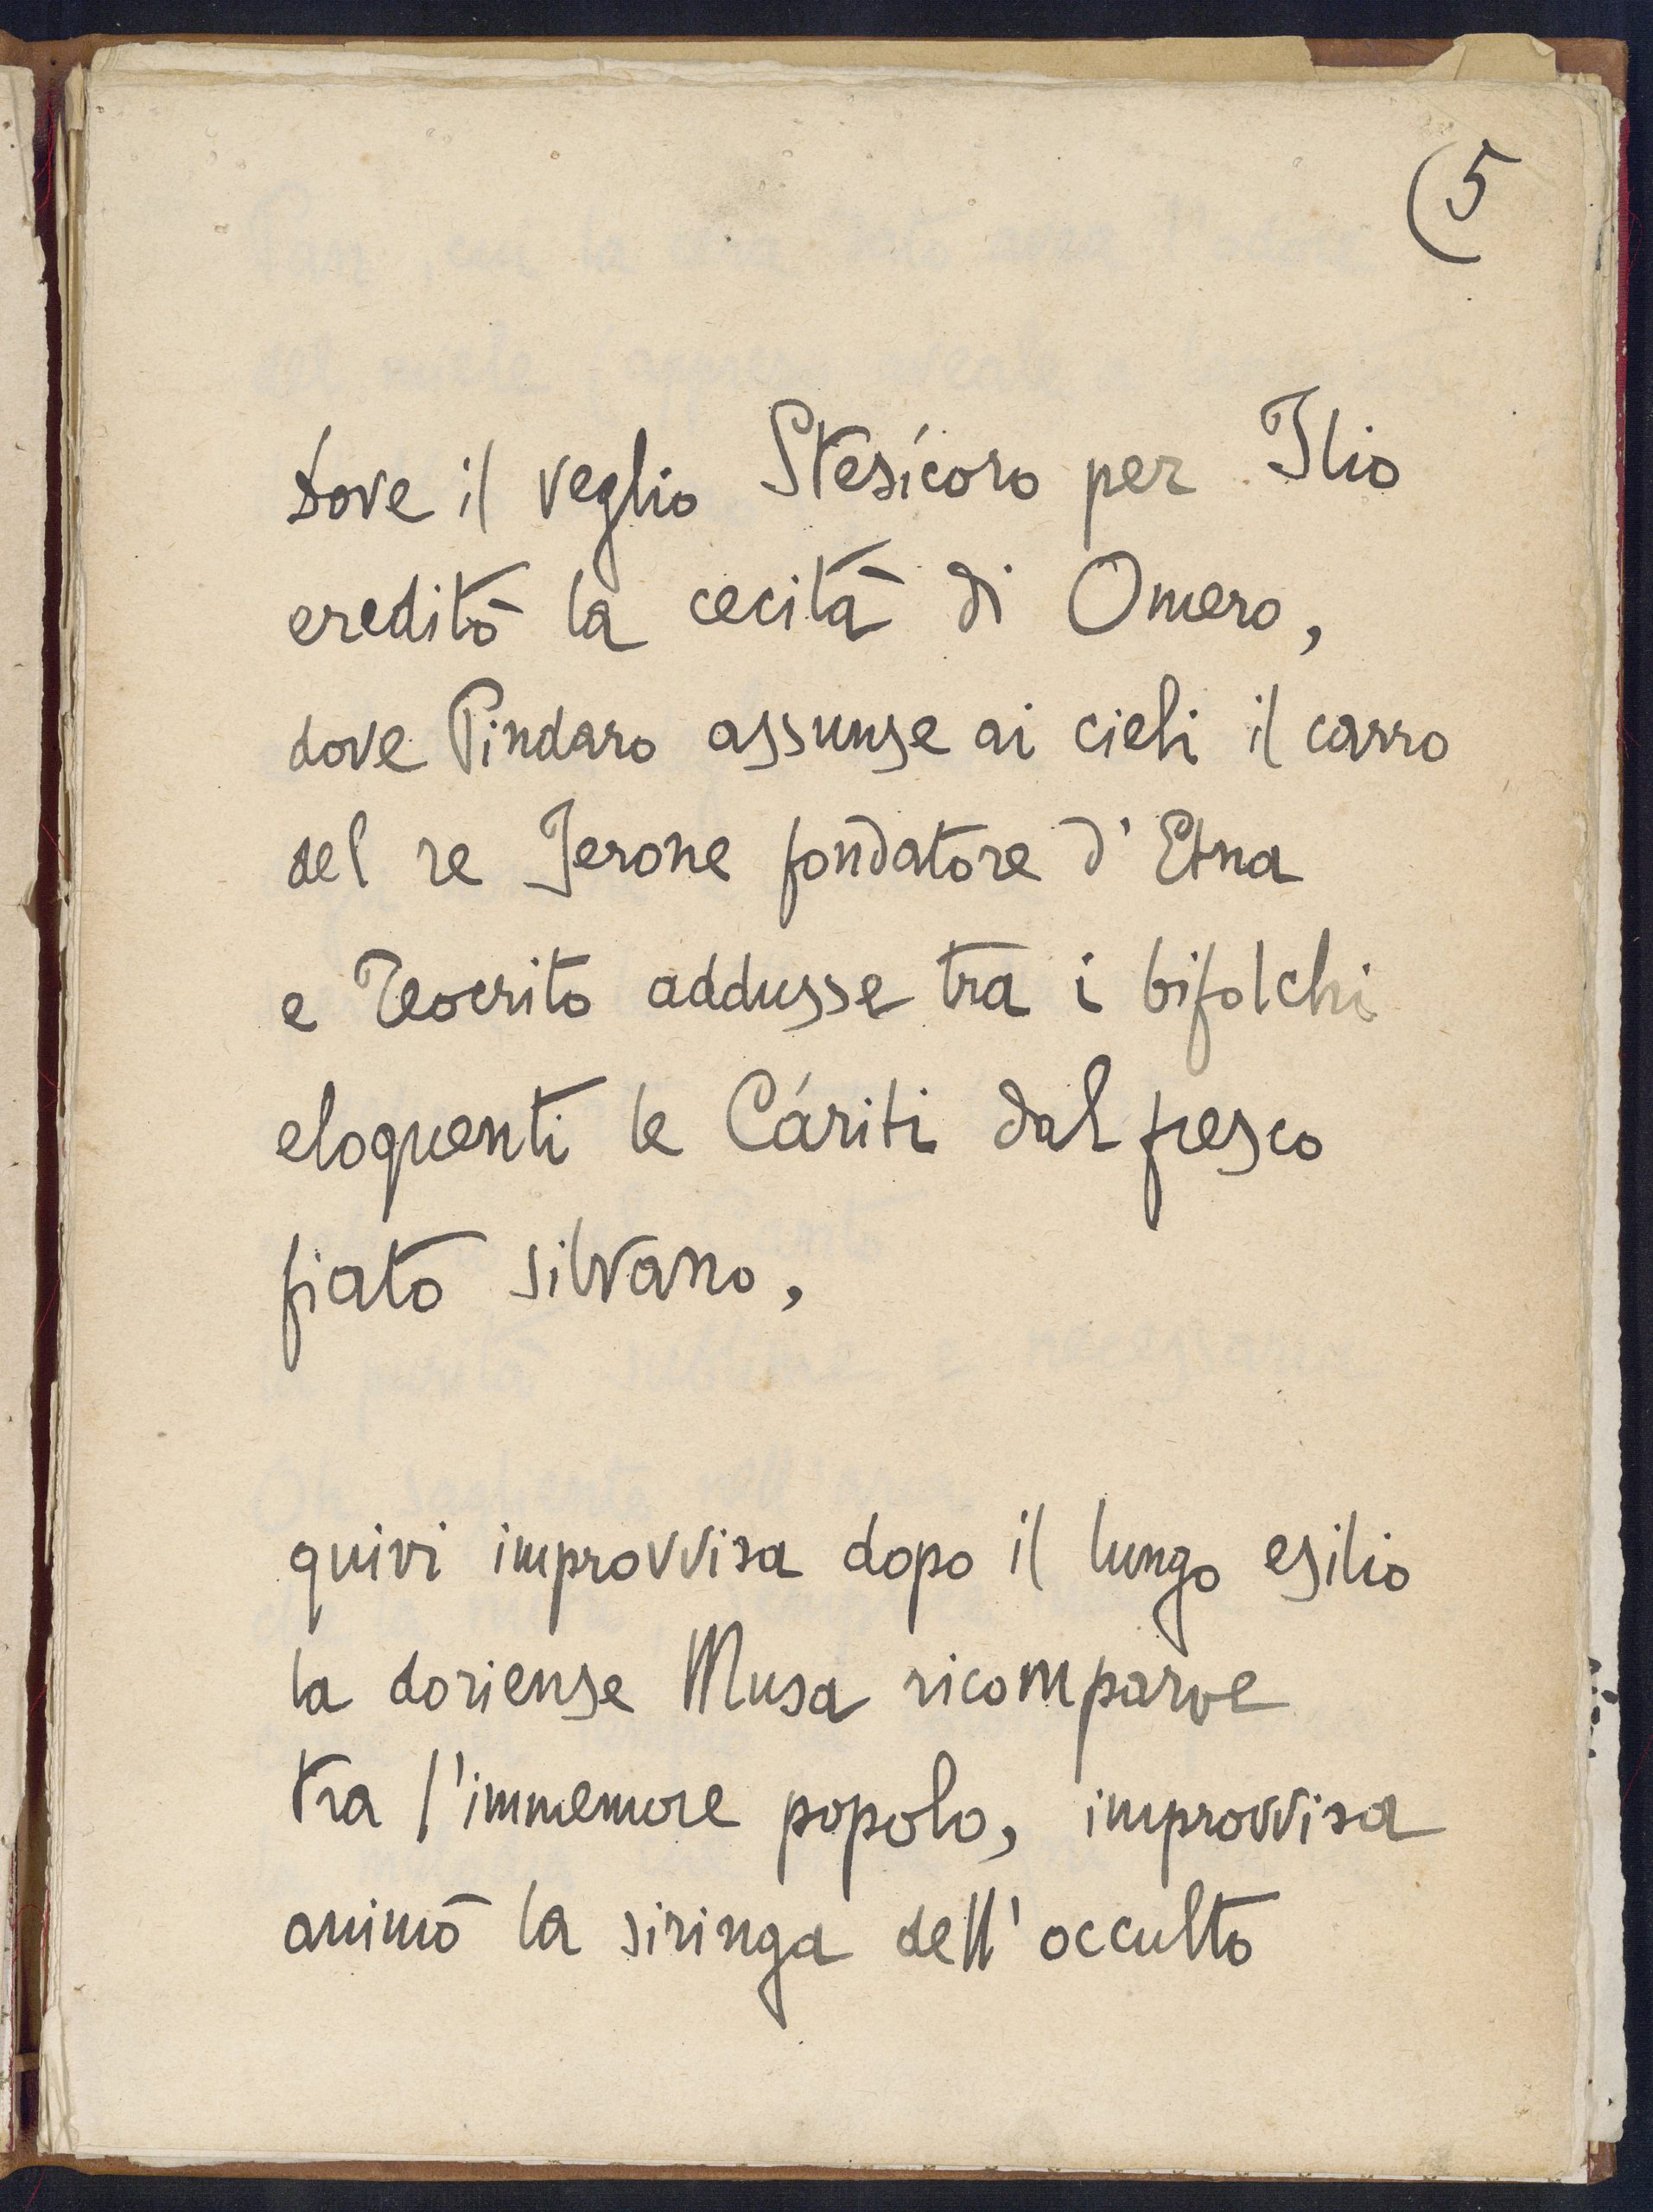 (5
dove il veglio Stesícoro per Ilio
ereditò la cecità di Omero,
dove Pindaro assunse ai cieli il carro
del re Jerone fondatore d'Etna
e Teocrito addusse tra i bifolchi
eloquenti le Cáriti dal fresco
fiato silvano,
quivi improvvisa dopo il lungo esilio
la doriense Musa ricomparve
tra l'immemore popolo, improvvisa
animò la siringa dell'occulto